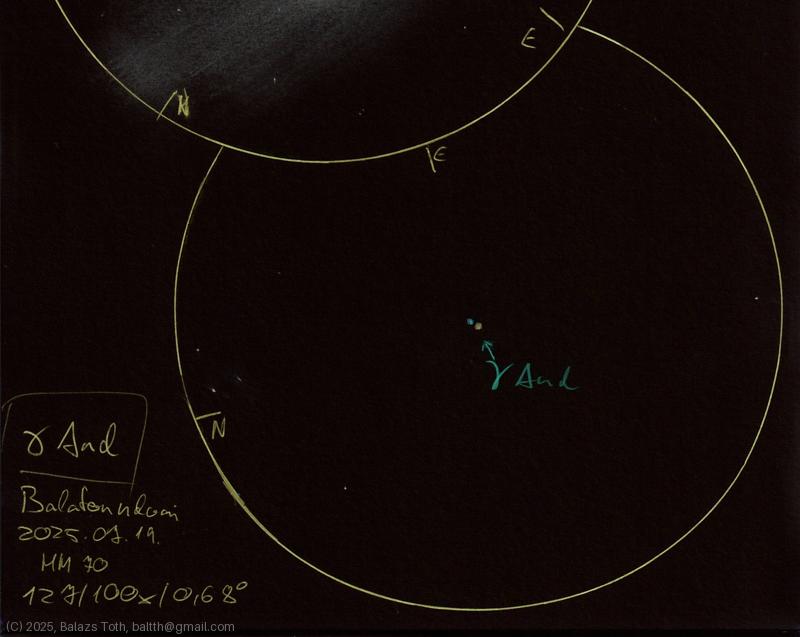 E
N
E
γ And
N
γ And
2025.07.19.
HM 70
127/100x/0,68°
(C) 2025, Balazs Toth, baltth@gmail.com